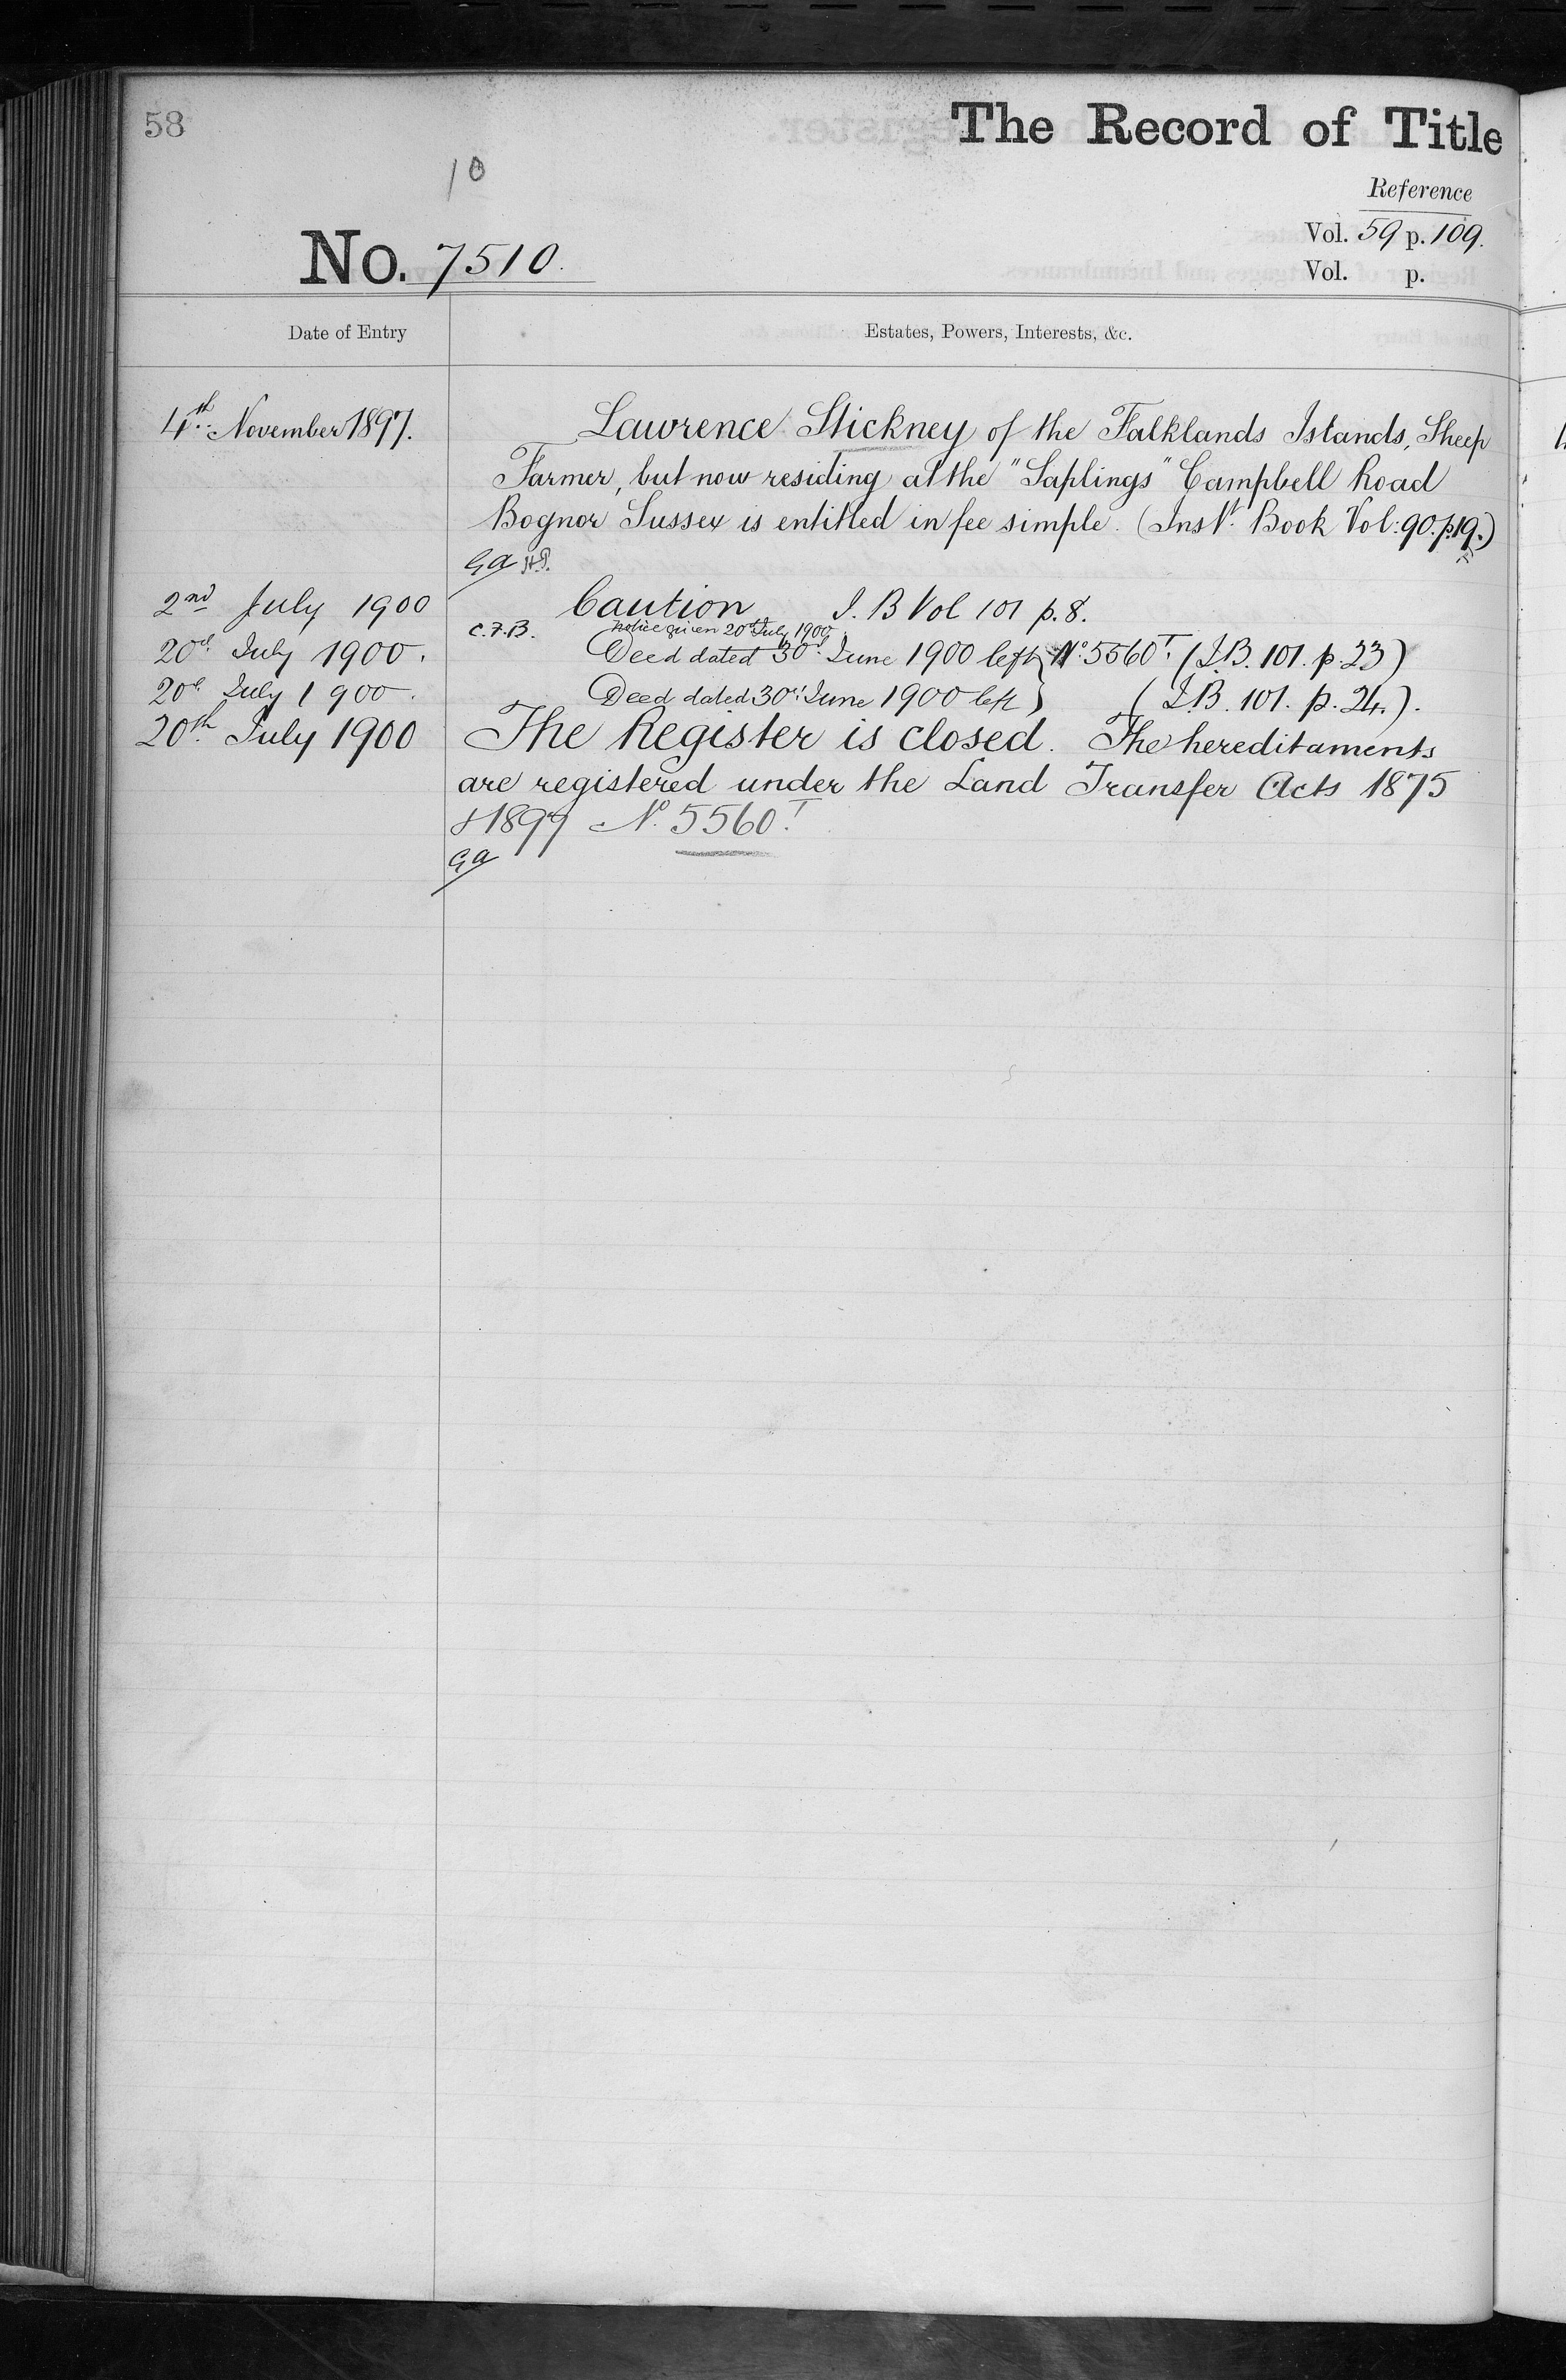 58
The Record of Title
10
Reference
No. 7510.
Vol. 59 p. 109.
Vol. p.
Date of Entry
Estates, Powers, Interests, &c.
4th November 1897.
Lawrence Stickney of the Falklands Islands, Sheep
Farmer, but now residing at the "Saplings" Campbell Road
Bognor Sussex is entitled in fee simple. (Inst. Book Vol: 90. p. 19.)
GA H.P.
2nd July 1900
Caution I. B Vol 101 p. 8.
C.F.B. Notice given 20th July 1900
20th July 1900.
Deed dated 30th June 1900 left } No. 5560T. (I.B. 101. p. 23)
20th July 1900.
Deed dated 30th June 1900 left } (I.B. 101. p. 24.).
20th July 1900
The Register is closed. The hereditaments
are registered under the Land Transfer Acts 1875
& 1897 No. 5560T.
GA